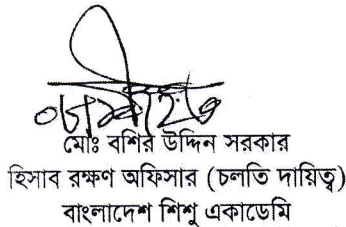 মোঃ বশির উদ্দিন সরকার
হিসাব রক্ষণ অফিসার (চলতি দায়িত্ব)
বাংলাদেশ শিশু একাডেমি